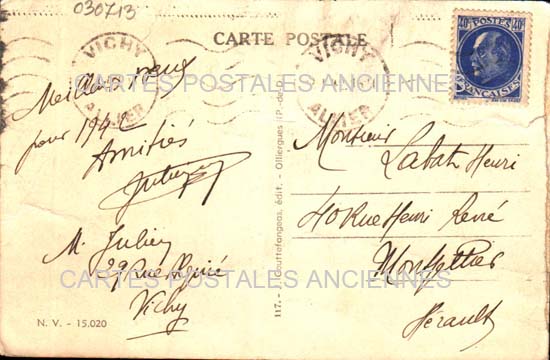 030713
CARTE POSTALE
VICHY
ALLIER
VICHY
ALLIER
40c POSTES 40c
FRANÇAISES
CARTES POSTALES ANCIENNES
Meilleurs vœux
pour 194
Amitiés
Julien
M. Julien
29 Rue
Vichy
N. V. - 15.020
117. - Gouttefangeas, édit. - Olliergues (P.-de-D.)
Monsieur
Labat Henri
40 Rue Henri René
Montpellier
Hérault
CARTES POSTALES ANCIENNES